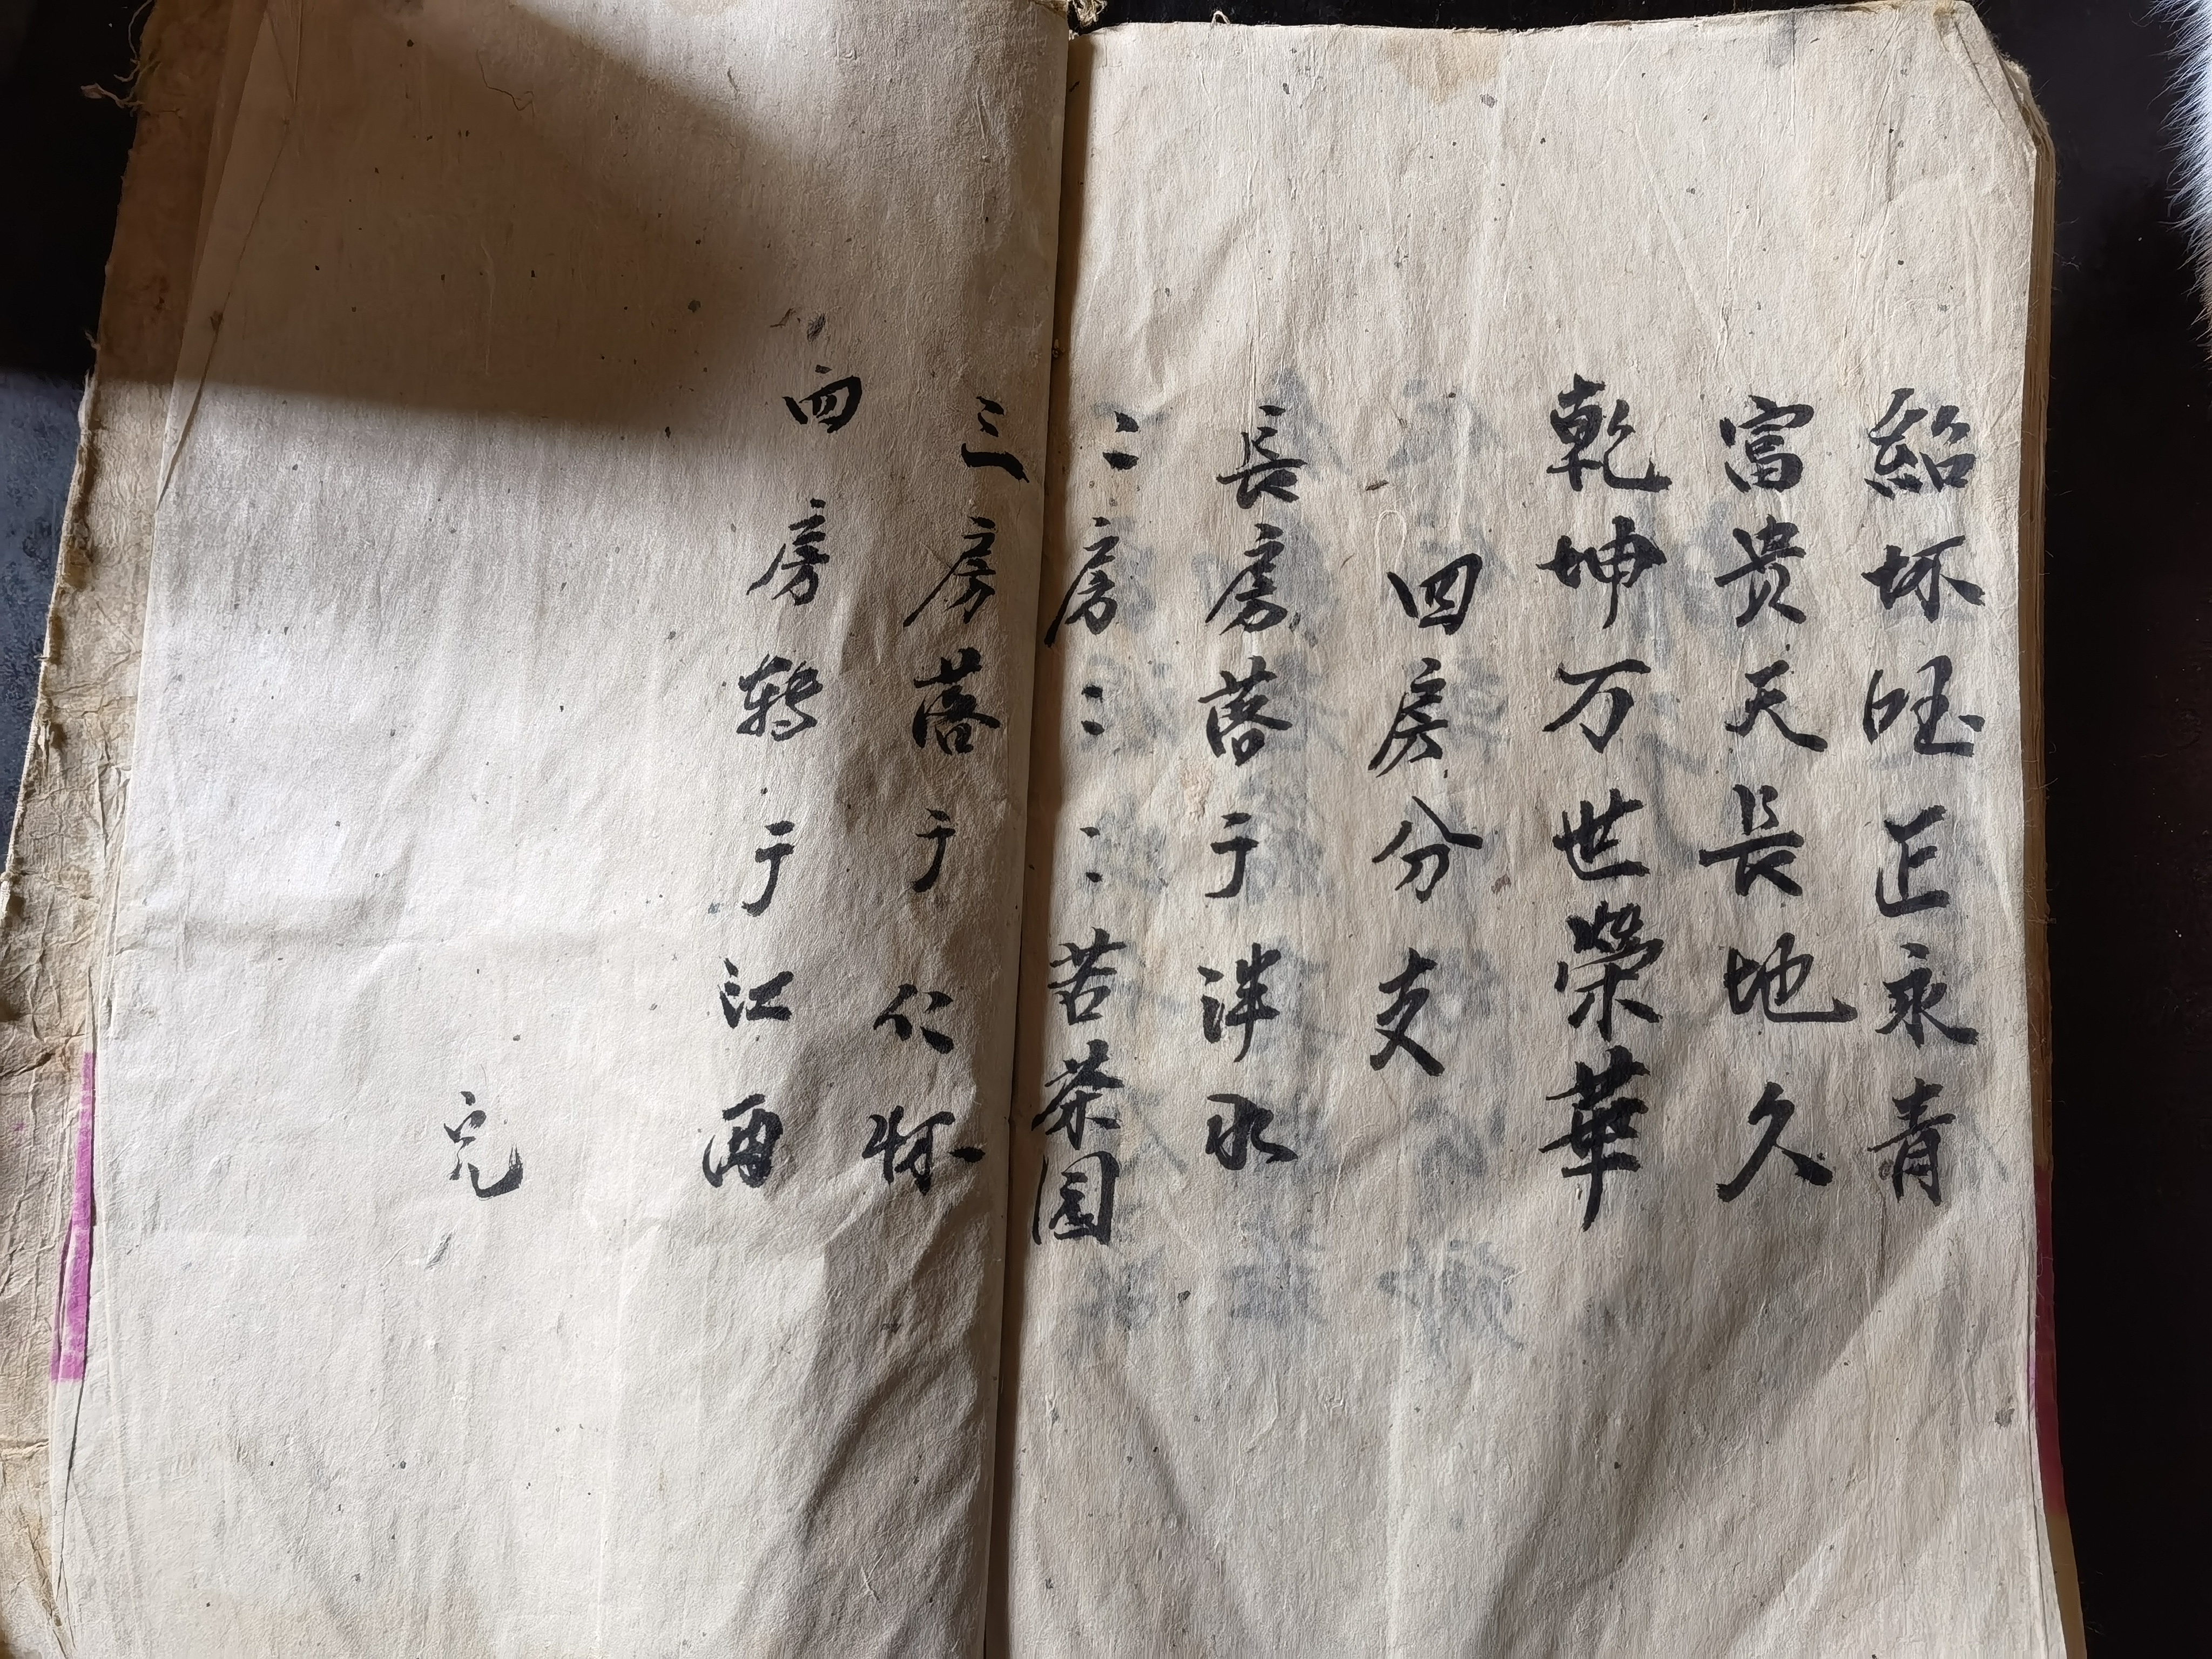 紹坏旺正永青
富贵天長地久
乾坤万世榮華
四房分支
長房落于泮水
二房::苦茶园
三房落于仁怀
四房转于江西
完